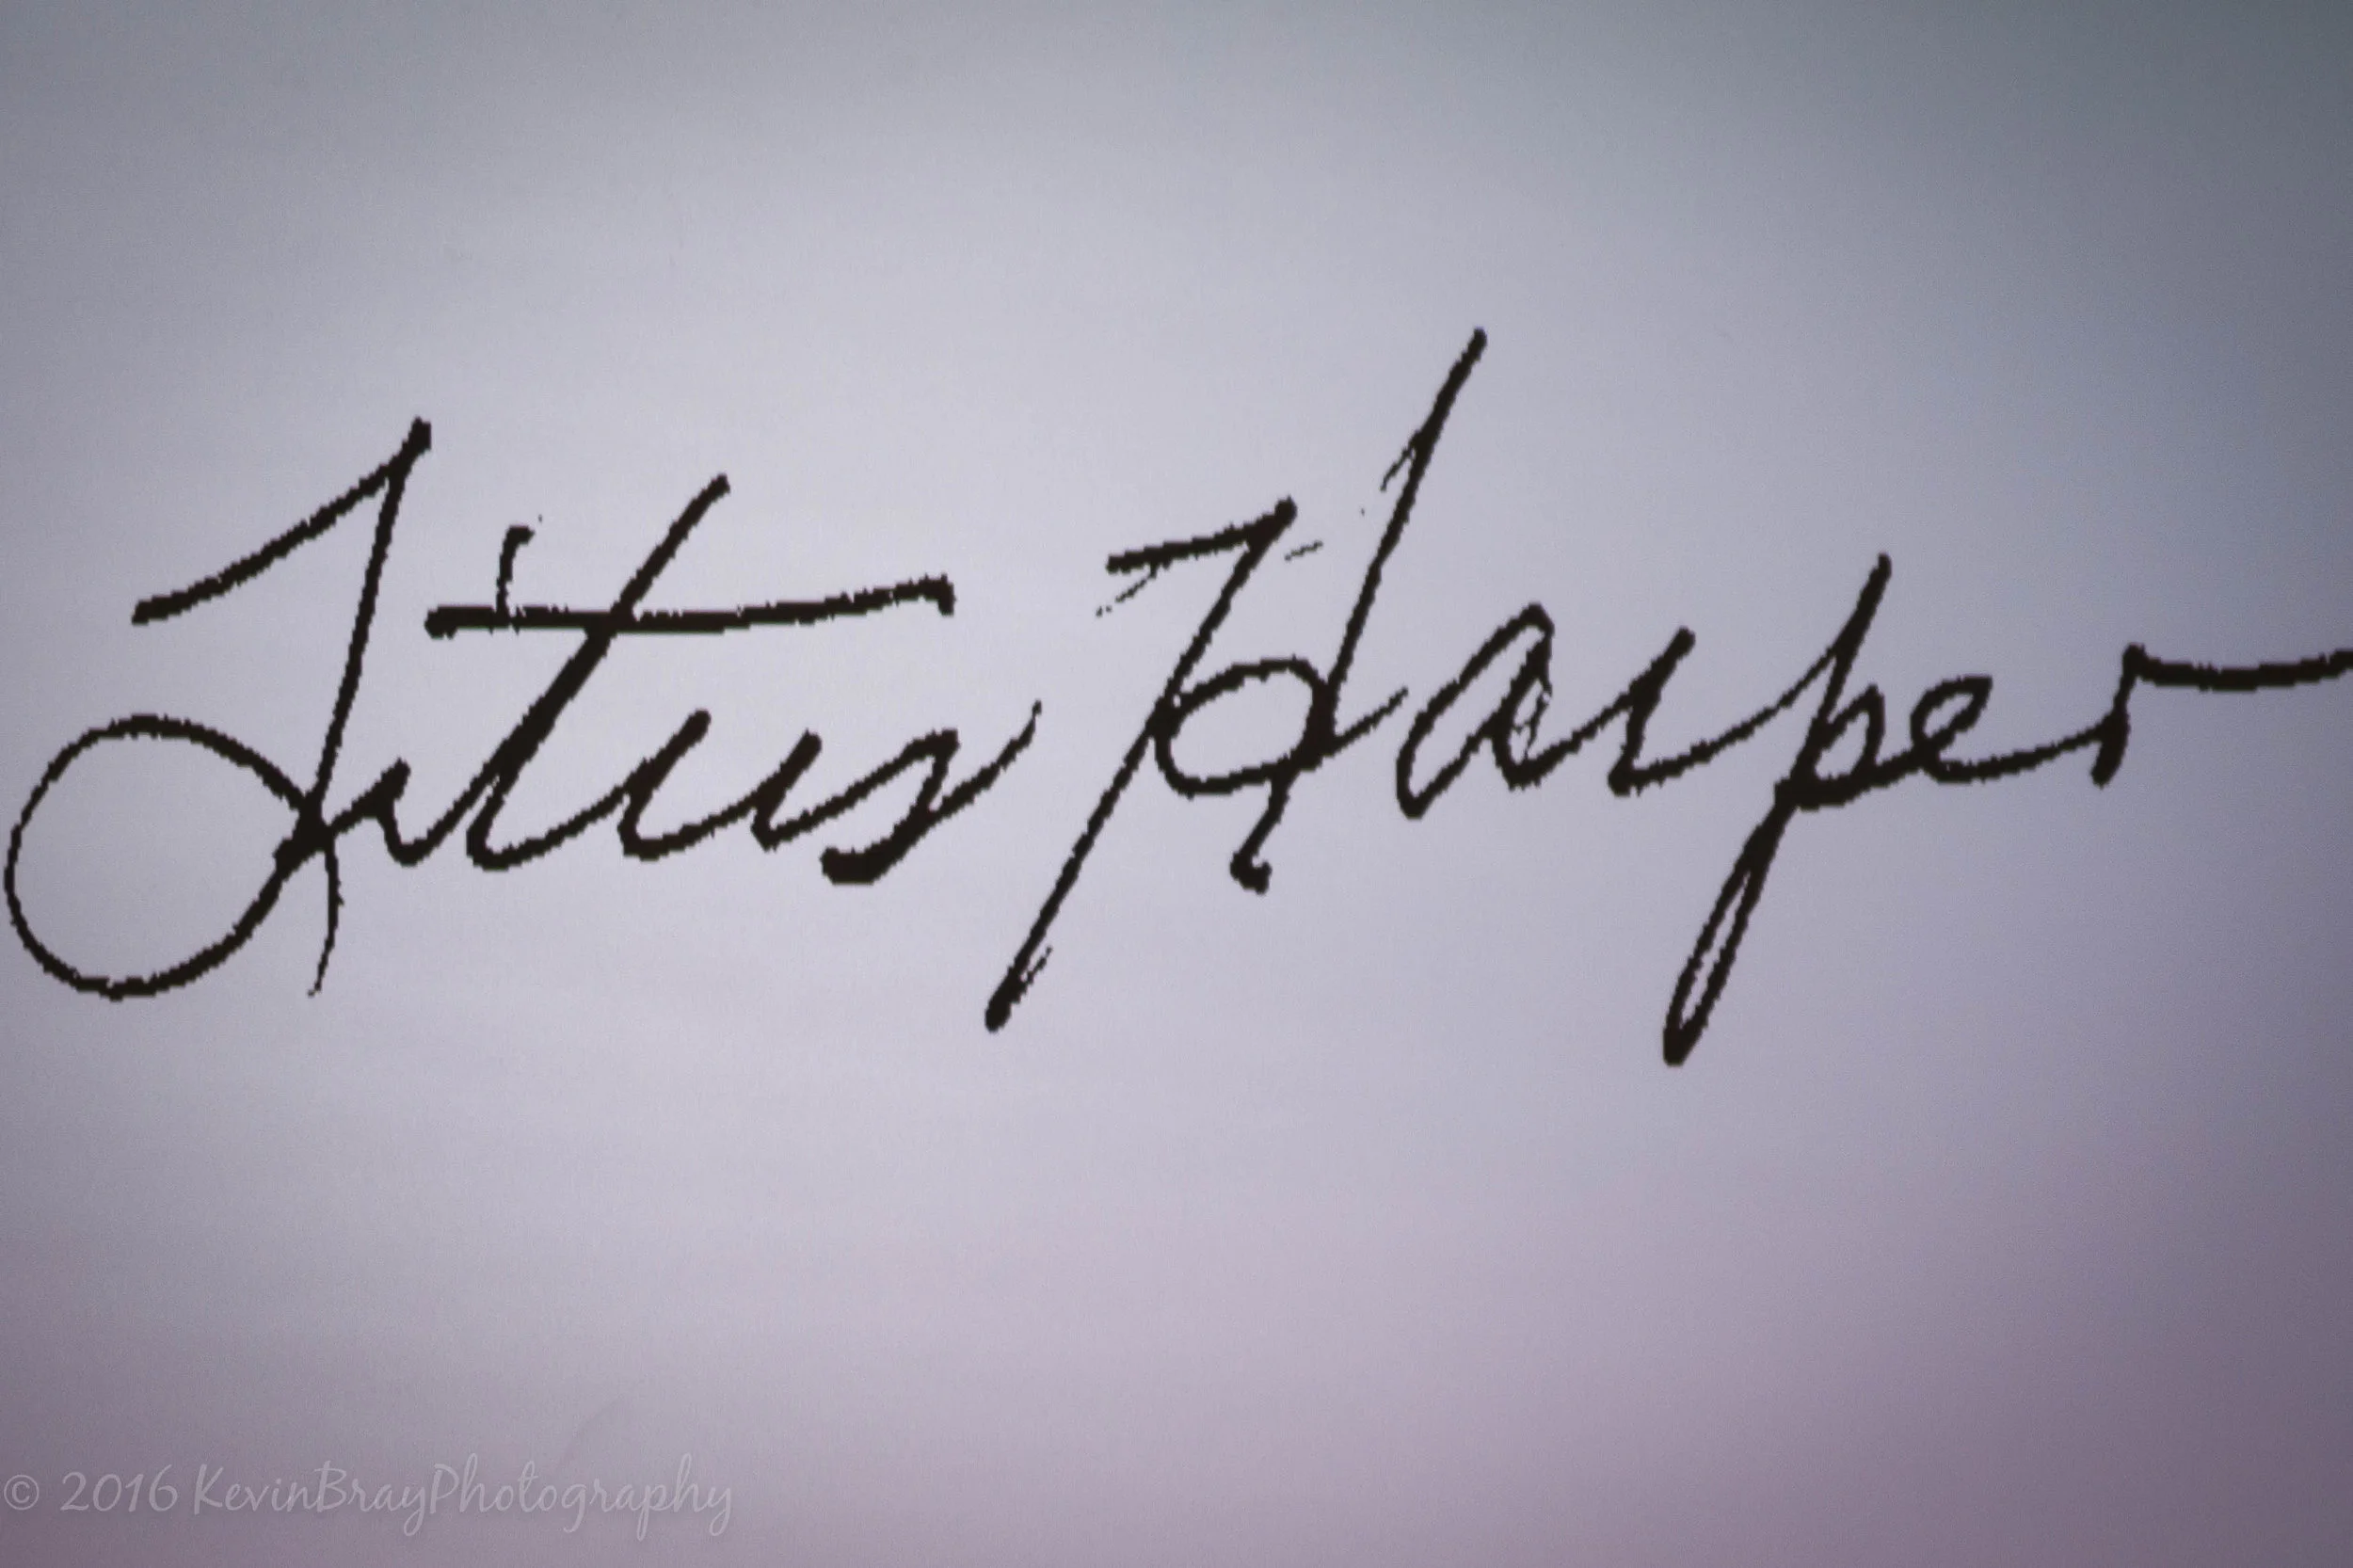 Titus Harper
© 2016 KevinBrayPhotography